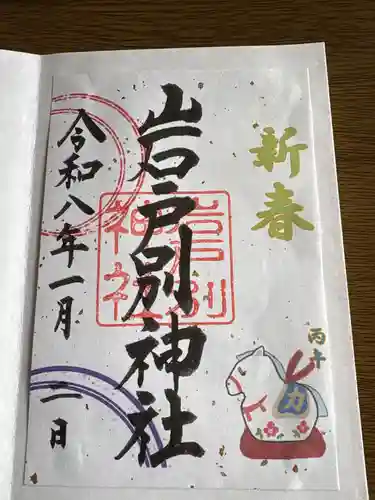 新春
丙午
岩戸別神社
岩戸別
神社
令和八年一月二日